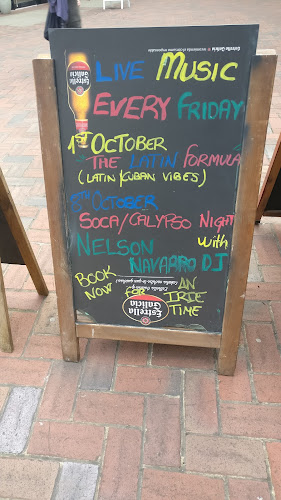 LIVE MUSIC
EVERY FRIDAY
1ST OCTOBER
"THE LATIN FORMULA"
(LATIN/CUBAN VIBES)
8TH OCTOBER
SOCA/CALYPSO NIGHT
NELSON with
NAVARRO DJ
BOOK NOW FOR AN IRIE TIME
Estrella
Galicia